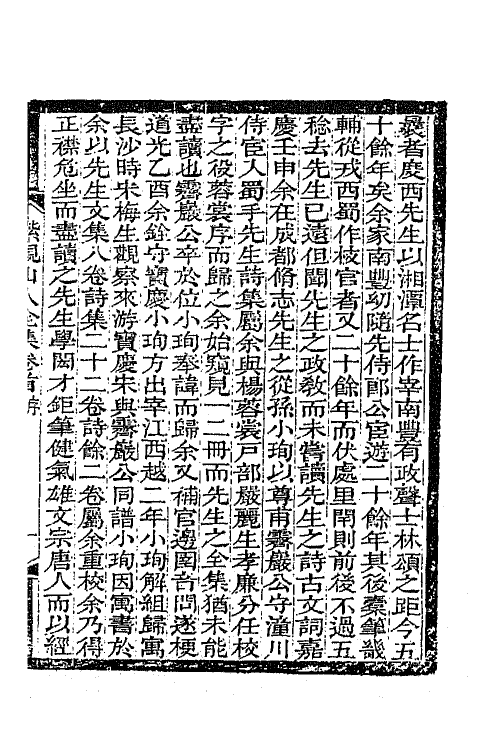 曩者度西先生以湘潭名士作宰南豐有政聲士林頌之距今五
十餘年矣余家南豐幼隨先侍郎公宦遊二十餘年其後橐筆畿
輔從戎西蜀作校官者又二十餘年而伏處里閈則前後不過五
稔去先生已遠但聞先生之政敎而未嘗讀先生之詩古文詞嘉
慶壬申余在成都脩志先生之從孫小珣以尊甫霽巖公守潼川
侍宦入蜀手先生詩集屬余與楊蓉裳戸部嚴麗生孝廉分任校
字之役蓉裳序而歸之余始窺見一二冊而先生之全集猶未能
盡讀也霽巖公卒於位小珣奉諱而歸余又補官邊圉音問遂梗
道光乙酉余銓守寶慶小珣方出宰江西越二年小珣解組歸寓
長沙時朱梅生觀察來游寶慶朱與霽巖公同譜小珣因寓書於
余以先生文集八卷詩集二十二卷詩餘二卷屬余重校余乃得
正襟危坐而盡讀之先生學閎才鉅筆健氣雄文宗唐人而以經
紫峴山人全集卷首序
一